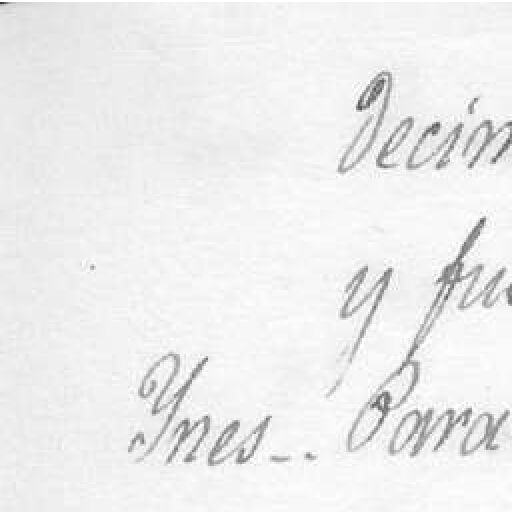 decim
y fus
Ynes_. Para